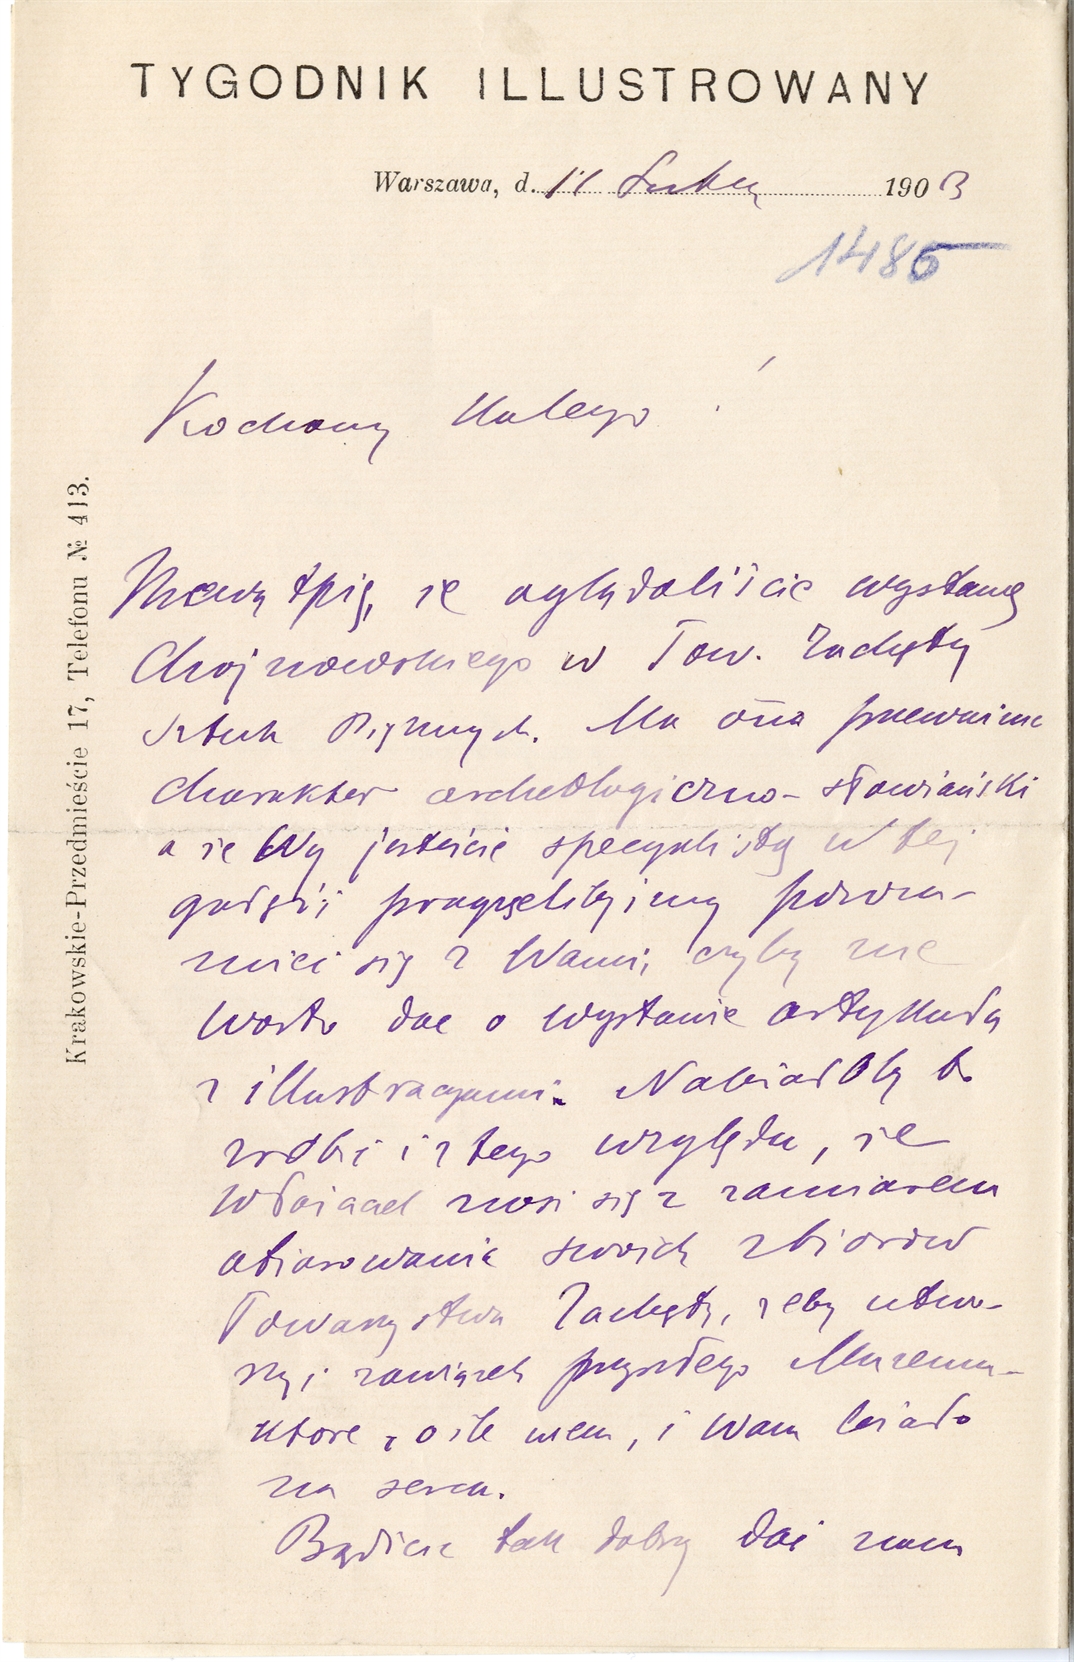 TYGODNIK ILLUSTROWANY
Warszawa, d. 11 Lutey 1903
1485
Kochany Kolego!
Krakowskie-Przedmieście 17, Telefonu № 413.
Niewątpię, że oglądaliście wystawę
Chojnowskiego w Tow. Zachęty
Sztuk Pięknych. Ma ona przeważnie
charakter archeologiczno-słowiański
a że Wy jesteście specyalistą w tej
gałęzi pragnęlibyśmy porozu-
mieć się z Wami, czyby nie
warto dać o wystawie artykułu
z illustracyami. Należałoby to
zrobić i z tego względu, że
właściciel nosi się z zamiarem
ofiarowania swoich zbiorów
Towarzystwu Zachęty, żeby utwo-
rzyć zawiązek przyszłego Muzeum-
które, o ile wiem, i Wam leżało
na sercu.
Bądźcie tak dobry dać nam